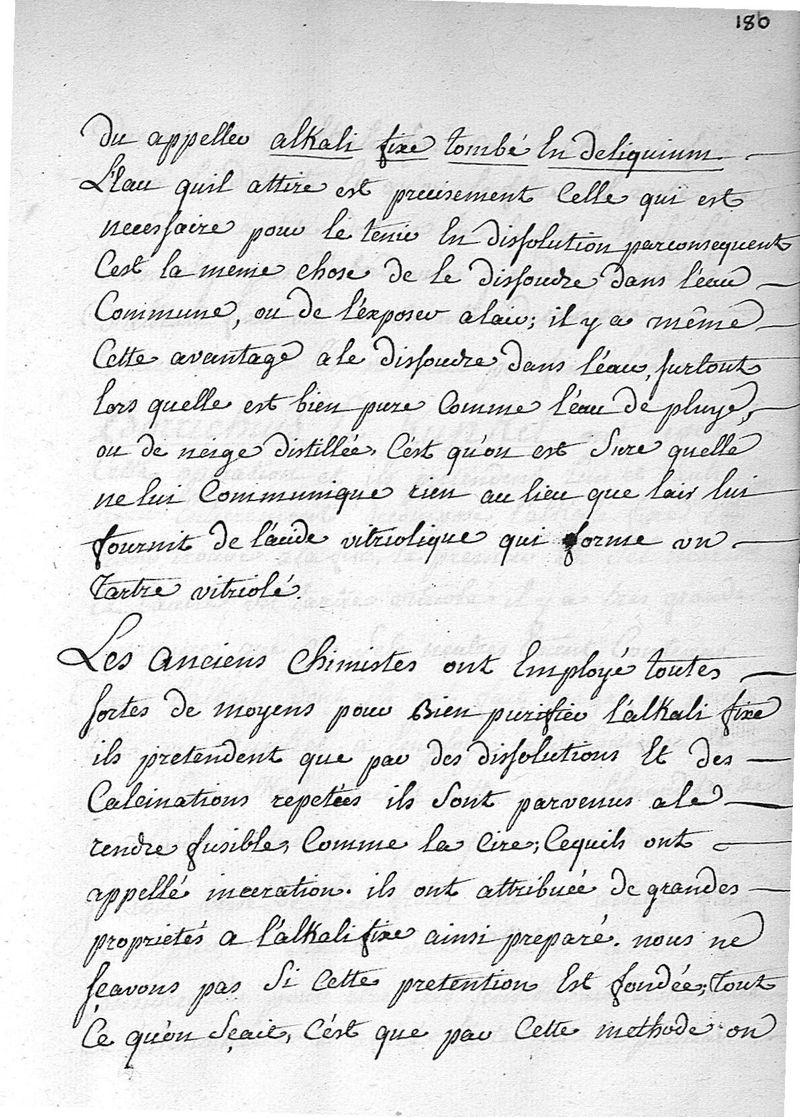 180
du appeller alkali fixe tombé En deliquium.
L'Eau quil attire est precisement Celle qui est
necessaire pour le tenir En dissolution parconsequent
C'est la meme chose de le dissoudre dans l'eau
Commune, ou de l'exposer alair; il y a même
Cette avantage a le dissoudre dans l'eau, surtout
lors quelle est bien pure Comme l'eau de pluye,
ou de neige distillée. C'est qu'on est Sure quelle
ne lui Communique rien au lieu que lair lui
fournit de l'acide vitriolique qui forme un
Tartre vitriolé.
Les anciens Chimistes ont Employé toutes
sortes de moyens pour Bien purifier l'alkali fixe
ils pretendent que par des dissolutions Et des
Calcinations repetées ils Sont parvenus a le
rendre fusible, Comme la Cire; Cequils ont
appellé inceration. ils ont attribuée de grandes
proprietés a l'alkali fixe ainsi preparé. nous ne
sçavons pas Si Cette pretention Est fondée; Tout
Ce qu'on Sçait, C'est que par Cette methode on